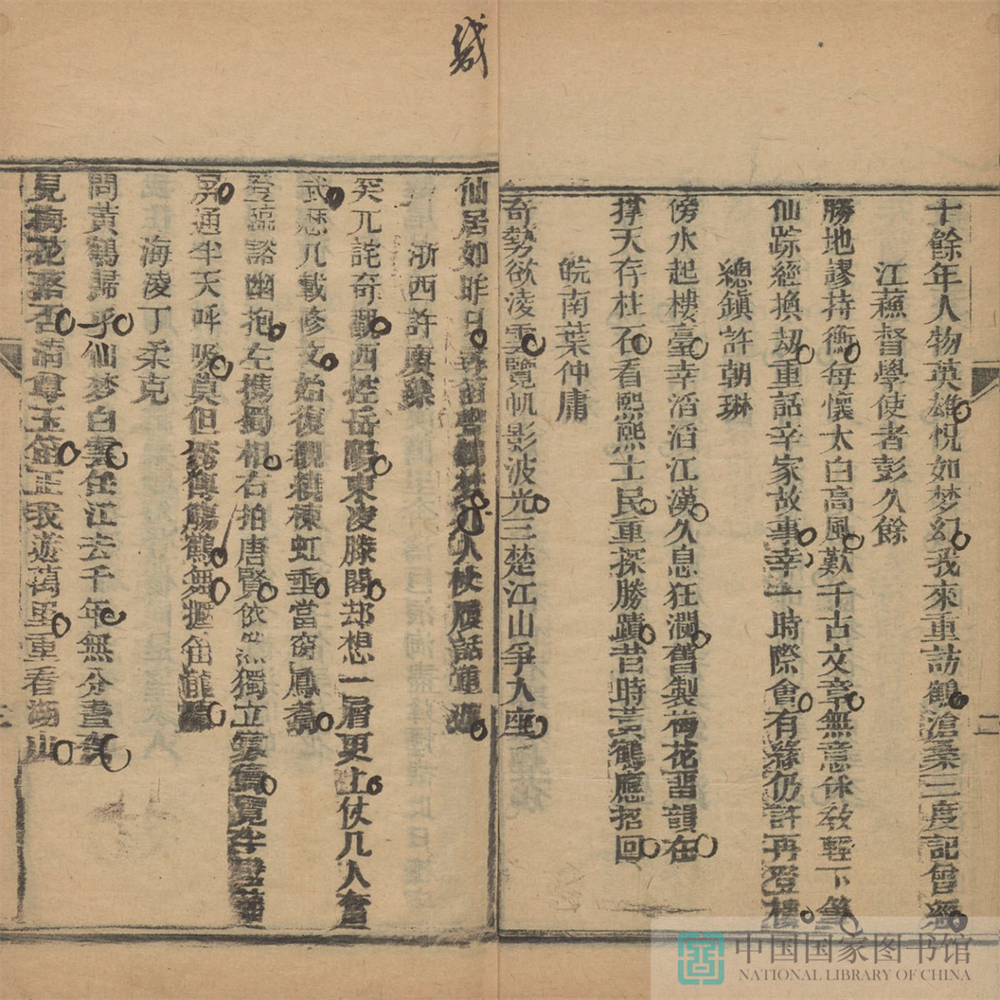 十餘年人物英雄恍如梦幻我來重訪鶴滄桑三度記曾經
江蘓督學使者彭久餘
勝地謬持衡每懷太白高風歎千古文章無意休敎輕下筆
仙踪經換劫重話辛家故事幸一時際會有緣仍許再登樓
總鎮許朝琳
傍水起樓臺幸滔滔江漢久息狂瀾舊製荷花習韻在
撑天存柱石看熙熙士民重探勝蹟昔時黃鶴應招回
皖南葉仲庸
奇勢欲淩雲覽帆影波光三楚江山爭入座
仙居如昨日尋笛聲人杖履話
浙西許
矣兀詫奇觀西控岳陽東凌滕閣却想一層更上仗几人奮
武歷几載修文始復觀繞棟虹垂當窗鳳翥
登臨豁幽抱左攜蜀相右拍唐賢依然獨立
屏通半天呼吸莫但携傳觴鶴舞擫笛龍
海凌丁柔克
問黃鶴歸乎仙梦白雲任江去千年無分晝夜
見梅花落否滿尊玉笛正我遊萬里重看湖山
中国国家图书馆
NATIONAL LIBRARY OF CHINA
二